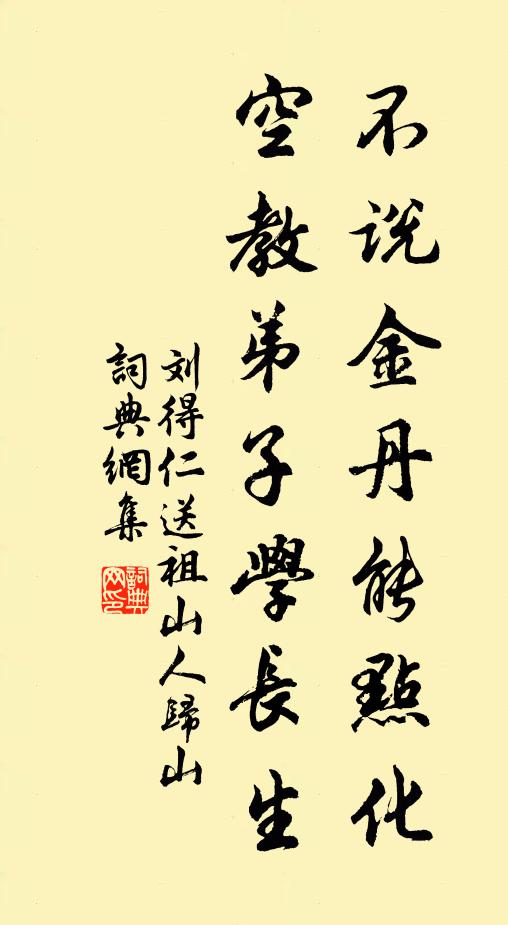 不说金丹能點化
空教弟子學長生
刘得仁送祖山人歸山
詞典網集
詞典網印